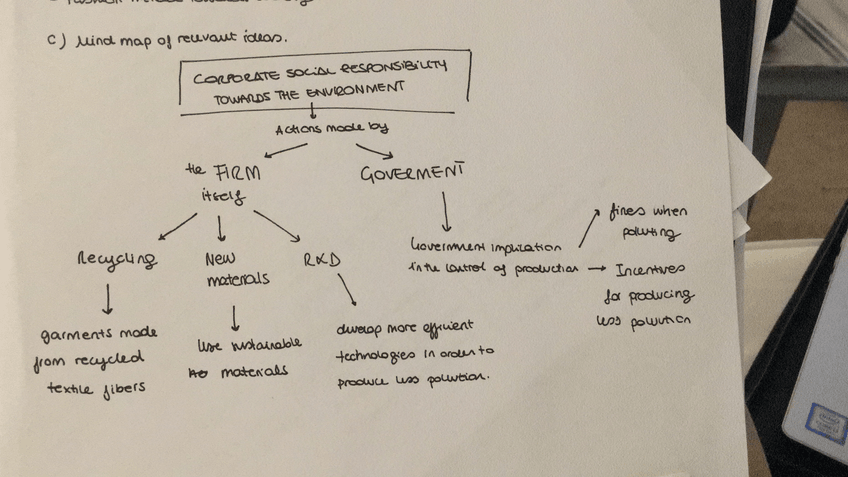 c) Mind map of relevant ideas.
CORPORATE SOCIAL RESPONSIBILITY
TOWARDS THE ENVIRONMENT
Actions made by
the FIRM
itself
GOVERMENT
Recycling
New
materials
R&D
Government implication
in the control of production
fines when
polluting
Incentives
for producing
less pollution
garments made
from recycled
textile fibers
Use sustainable
materials
develop more efficient
technologies in order to
produce less pollution.